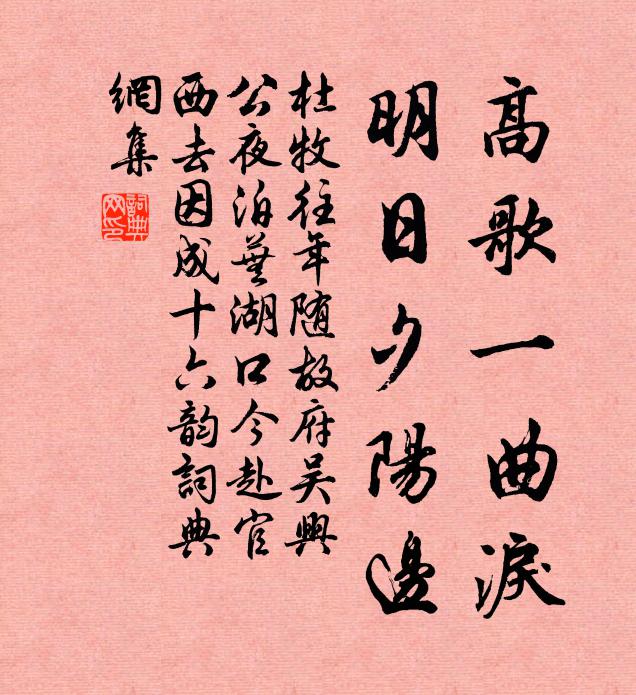 高歌一曲淚
明日夕陽邊
杜牧往年随故府吴興
公夜泊蕪湖口今赴官
西去因成十六韵詞典
網集
詞典
网印